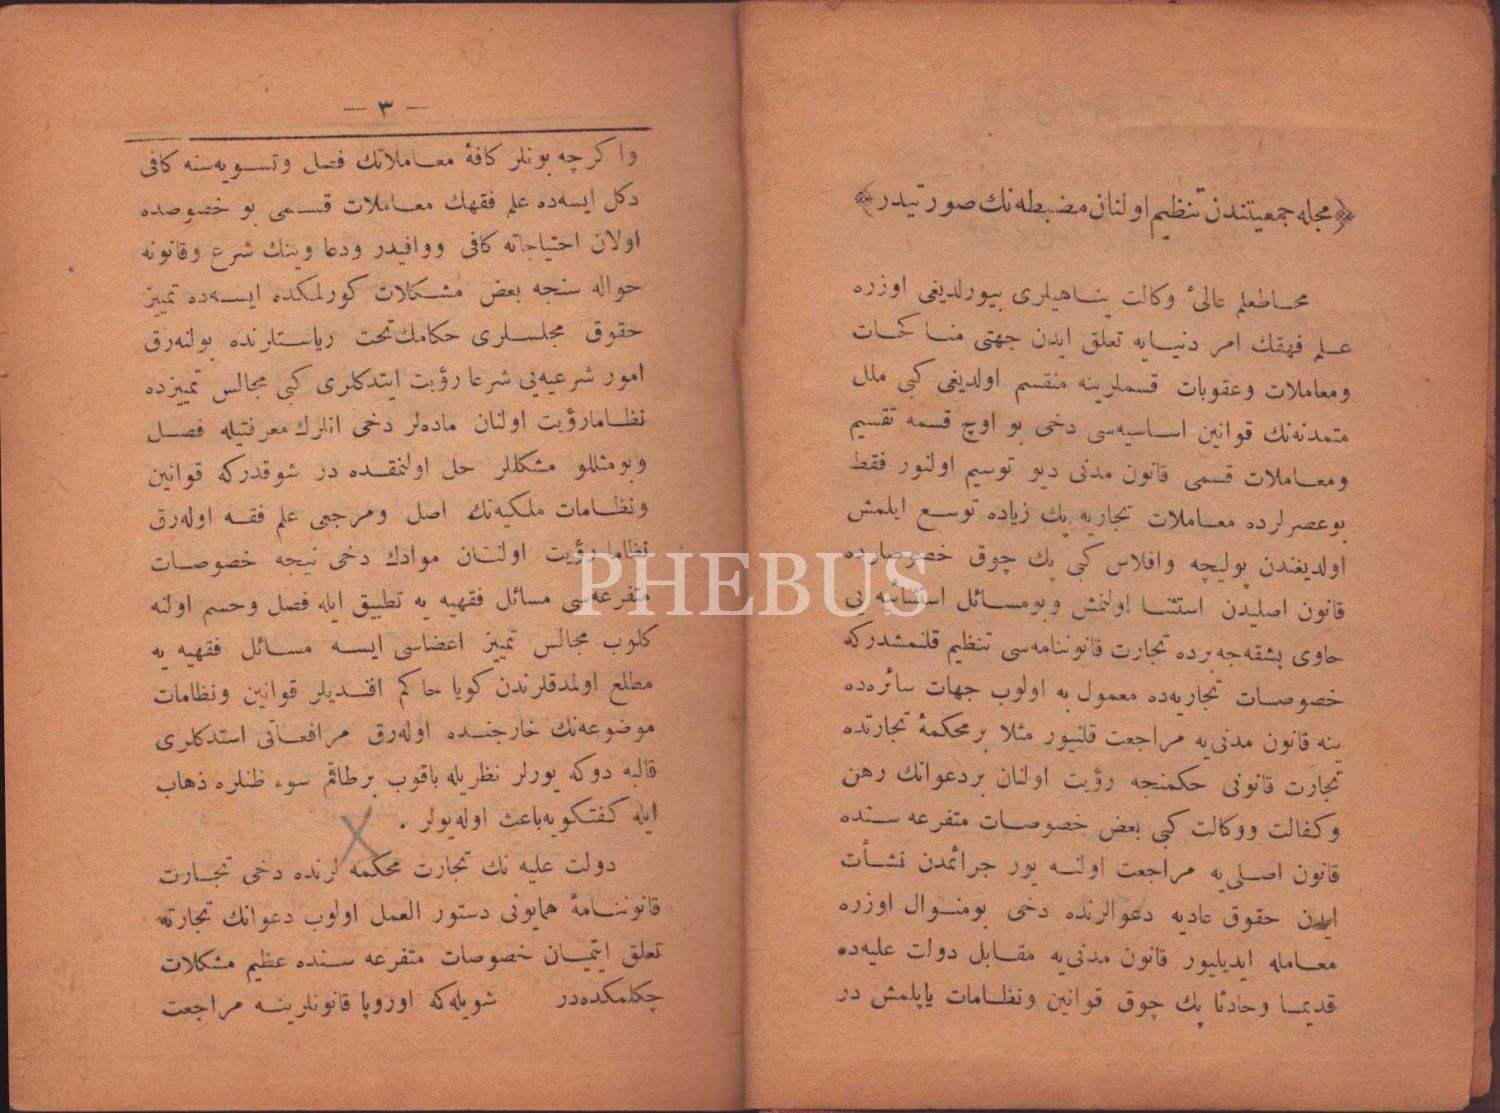 ﴿ مجله جمعيتندن تنظيم اولنان مضبطه نك صورتيدر ﴾
محاط علم عالئ وكالت پناهيلرى بيورلديغى اوزره
علم فقهك امر دنيايه تعلق ايدن جهتى مناكحات
ومعاملات وعقوبات قسملرينه منقسم اولديغى كبى ملل
متمدنه‌نك قوانين اساسيه‌سى دخى بو اوچ قسمه تقسيم
ومعاملات قسمى قانون مدنى ديو توسيم اولنور فقط
بو عصرلرده معاملات تجاريه پك زياده توسع ايلمش
اولديغندن پوليچه وافلاس كبى پك چوق خصوصلرده
قانون اصليدن استثنا اولنمش وبو مسائل استثنائيه يى
حاوى بشقه‌جه برده تجارت قانوننامه‌سى تنظيم قلنمشدركه
خصوصات تجاريه‌ده معمول به اولوب جهات سائره‌ده
ينه قانون مدنى‌يه مراجعت قلنيور مثلا بر محكمهٔ تجارتده
تجارت قانونى حكمنجه رؤيت اولنان بر دعوانك رهن
وكفالت ووكالت كبى بعض خصوصات متفرعه سنده
قانون اصلى‌يه مراجعت اولنه يور جرائمدن نشأت
ايدن حقوق عاديه دعوالرنده دخى بومنوال اوزره
معامله ايديليور قانون مدنى‌يه مقابل دولت عليه‌ده
قديما وحادثا پك چوق قوانين ونظامات ياپلمش در
— ٣ —
واكرچه بونلر كافهٔ معاملاتك فصل وتسويه‌سنه كافى
دكل ايسه‌ده علم فقهك معاملات قسمى بو خصوصده
اولان احتياجاته كافى ووافيدر ودعاوينك شرع وقانونه
حواله سنجه بعض مشكلات كورلمكده ايسه‌ده تمييز
حقوق مجلسلرى حكامك تحت رياستلرنده بولنه‌رق
امور شرعيه‌يى شرعا رؤيت ايتدكلرى كبى مجالس تمييزده
نظاما رؤيت اولنان ماده‌لر دخى انلرك معرفتيله فصل
وبو مثللو مشكللر حل اولنمقده در شوقدركه قوانين
ونظامات ملكيه‌نك اصل ومرجعى علم فقه اوله‌رق
نظاما رؤيت اولنان موادك دخى نيجه خصوصات
متفرعه‌سى مسائل فقهيه يه تطبيق ايله فصل وحسم اولنه
كلوب مجالس تمييز اعضاسى ايسه مسائل فقهيه يه
مطلع اولمدقلرندن كويا حاكم افنديلر قوانين ونظامات
موضوعه‌نك خارجنده اوله‌رق مرافعاتى استدكلرى
قالبه دوكه يورلر نظريله باقوب بر طاقم سوء ظنلره ذهاب
ايله كفتكويه باعث اوله يورلر .
دولت عليه نك تجارت محكمه لرنده دخى تجارت
قانوننامهٔ همايونى دستور العمل اولوب دعوانك تجارته
تعلق ايتميان خصوصات متفرعه سنده عظيم مشكلات
چكلمكده‌در شويله‌كه اوروپا قانونلرينه مراجعت
PHEBUS